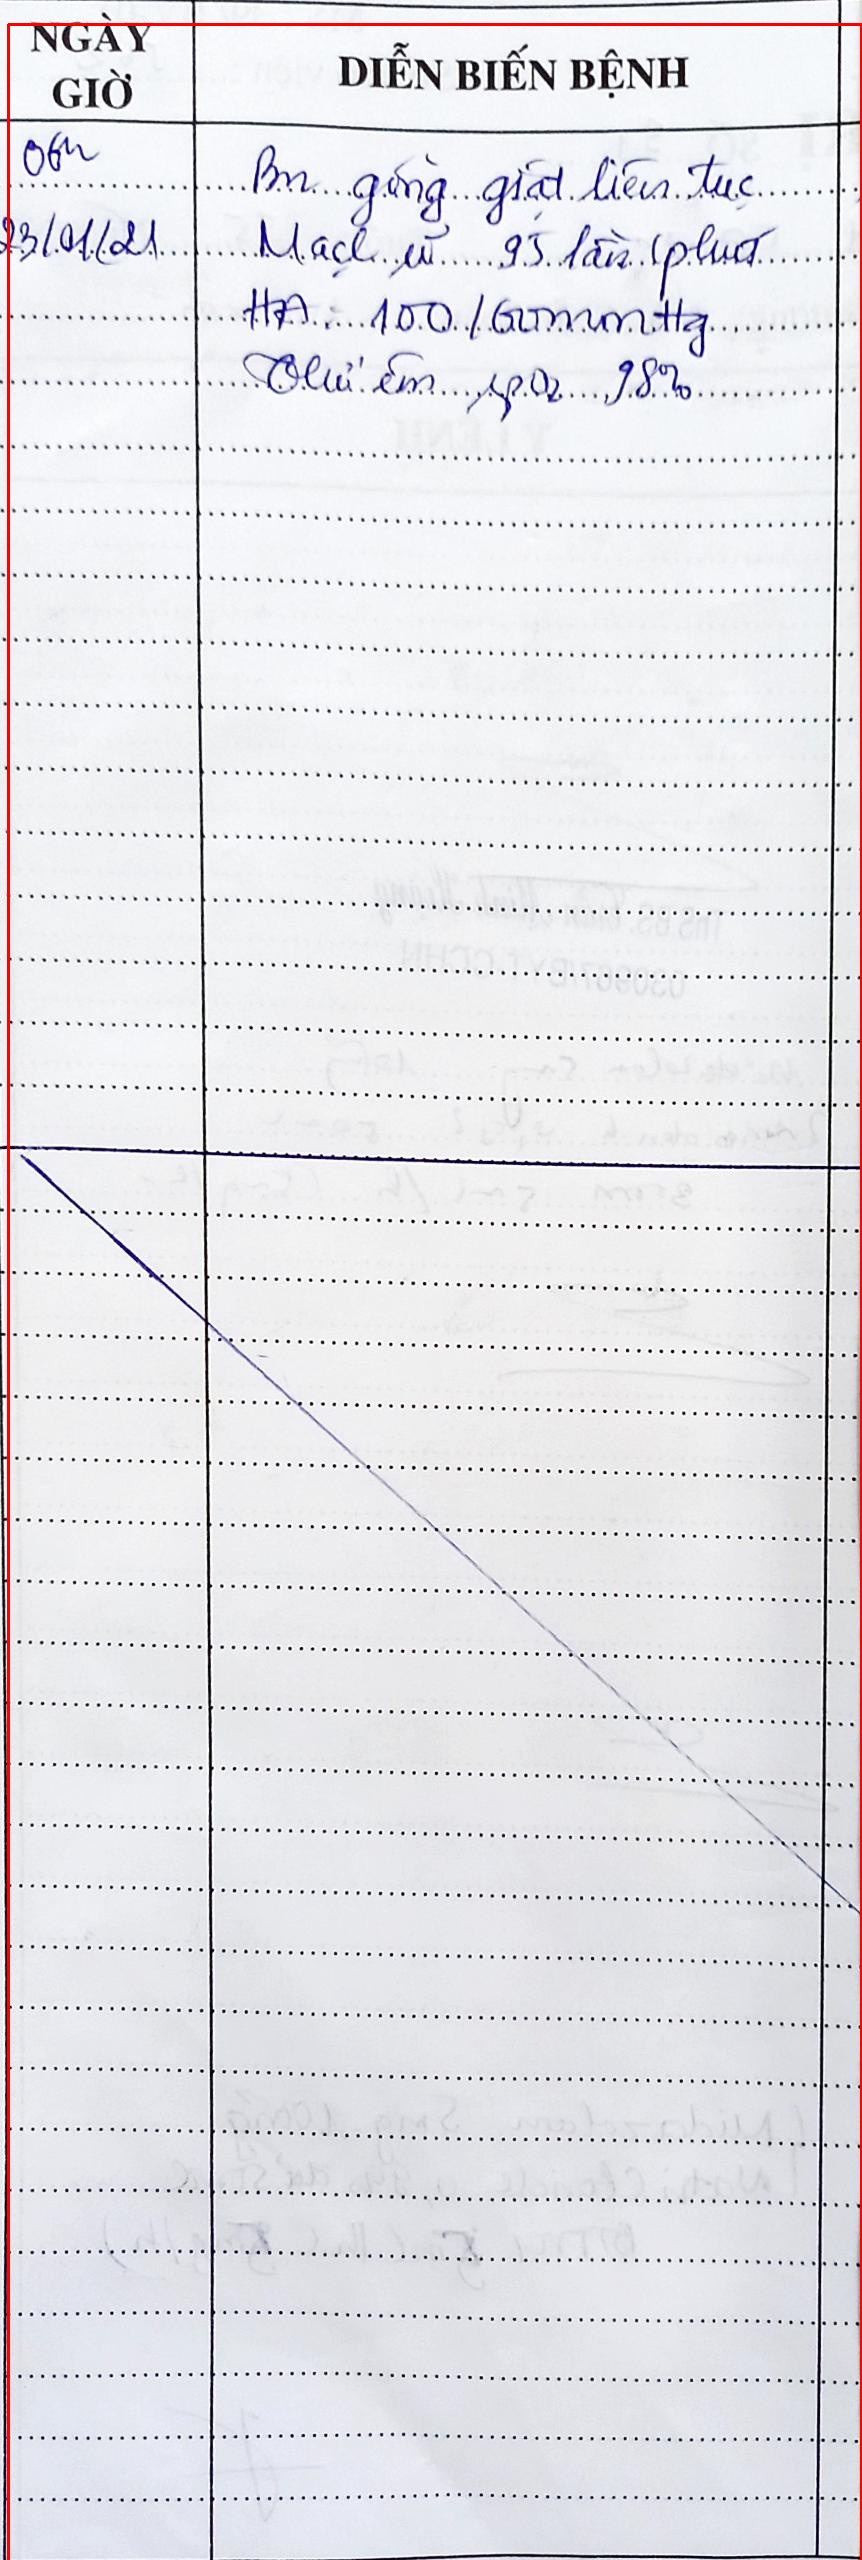 NGÀY GIỜ
DIỄN BIẾN BỆNH
06h
Bn gồng giật liên tục
23/01/21 Mạch 95 lần/phút
HA: 100/60mmHg
Thở êm spO2 98%